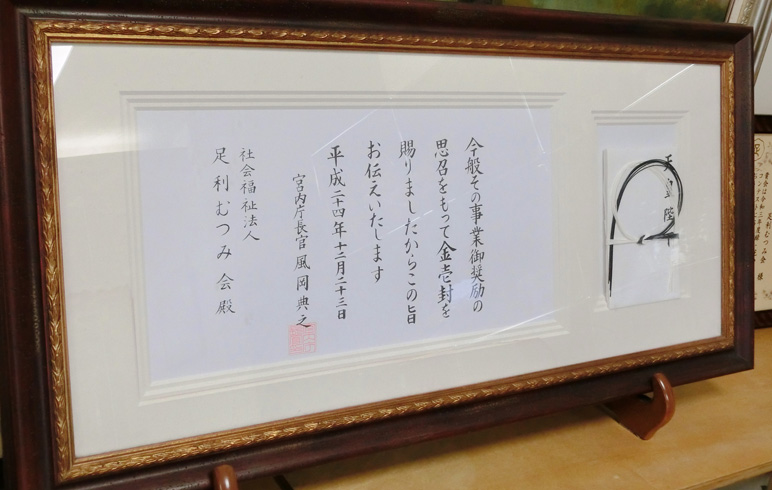 天皇陛下
今般その事業御奨励の
思召をもって金壱封を
賜りましたからこの旨
お伝えいたします
平成二十四年十二月二十三日
宮内庁長官 風岡典之
社会福祉法人
足利むつみ会 殿